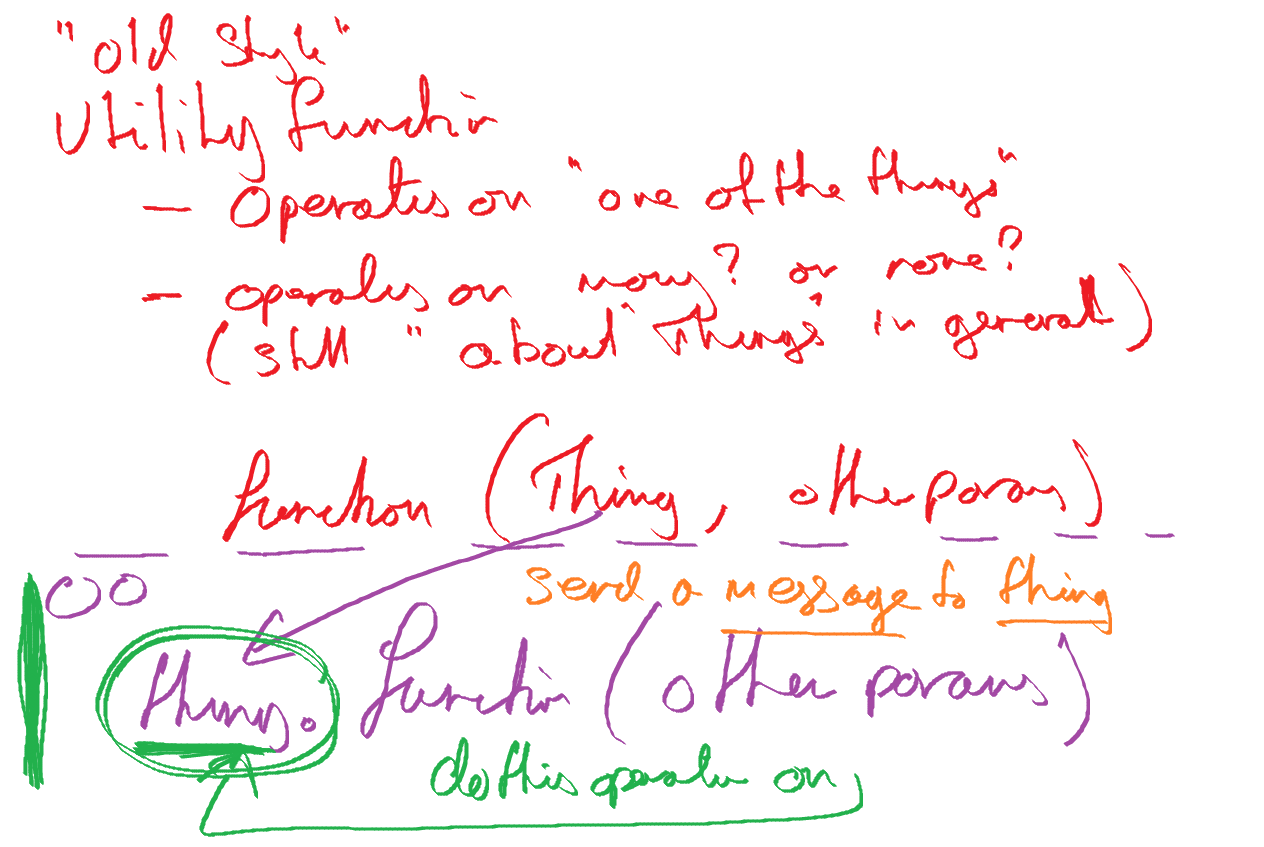 "Old Style"
Utility function
- Operates on "one of the things"
- operates on many? or none?
(still "about" Things' in general)
function (Thing, other params)
OO
send a message to thing
thing. function (other params)
do this operation on